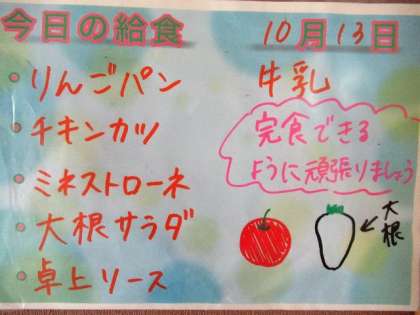 今日の給食 10月13日
・りんごパン 牛乳
・チキンカツ
・ミネストローネ
・大根サラダ
・卓上ソース
完食できる
ように頑張りましょう
大根